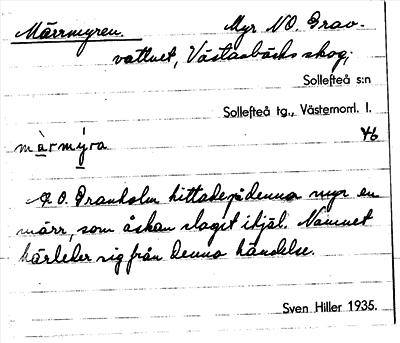 Märrmyren. Myr NO. Grav-
vattnet, Västanbäcks skog,
Sollefteå s:n
Sollefteå tg., Västernorrl. l.
46
märmýra
O. Granholm hittade på denna myr en
märr, som åskan slagit ihjäl. Namnet
härleder sig från denna händelse.
Sven Hiller 1935.